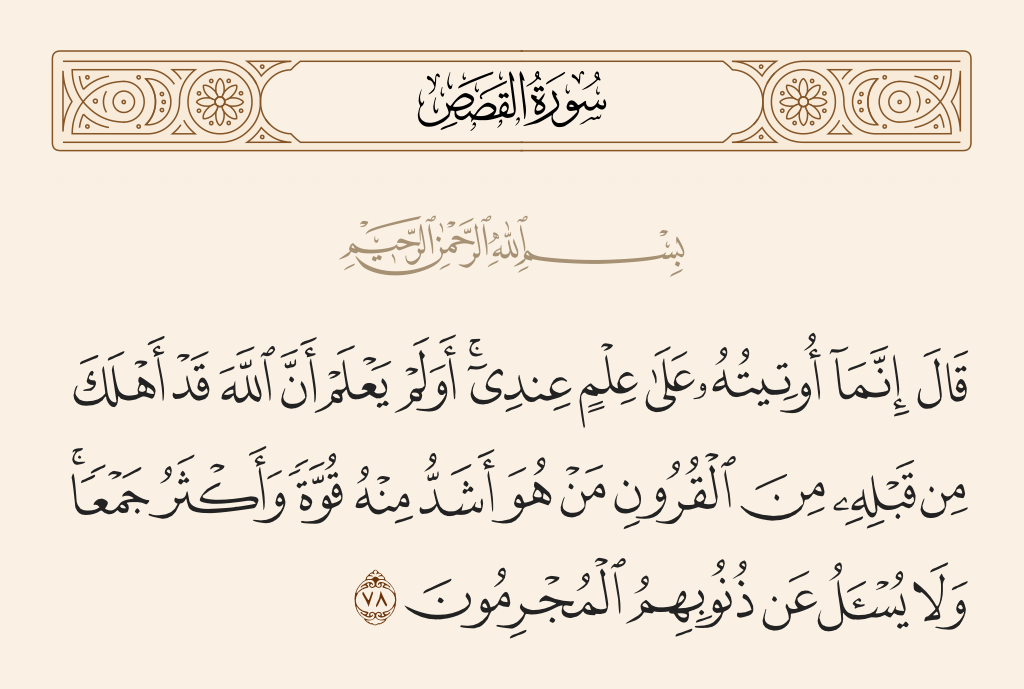 سُورَةُ القَصَصِ
بِسْمِ ٱللَّهِ ٱلرَّحْمَٰنِ ٱلرَّحِيمِ
قَالَ إِنَّمَآ أُوتِيتُهُۥ عَلَىٰ عِلْمٍ عِندِىٓ ۚ أَوَلَمْ يَعْلَمْ أَنَّ ٱللَّهَ قَدْ أَهْلَكَ
مِن قَبْلِهِۦ مِنَ ٱلْقُرُونِ مَنْ هُوَ أَشَدُّ مِنْهُ قُوَّةً وَأَكْثَرُ جَمْعًا ۚ
وَلَا يُسْـَٔلُ عَن ذُنُوبِهِمُ ٱلْمُجْرِمُونَ ٧٨